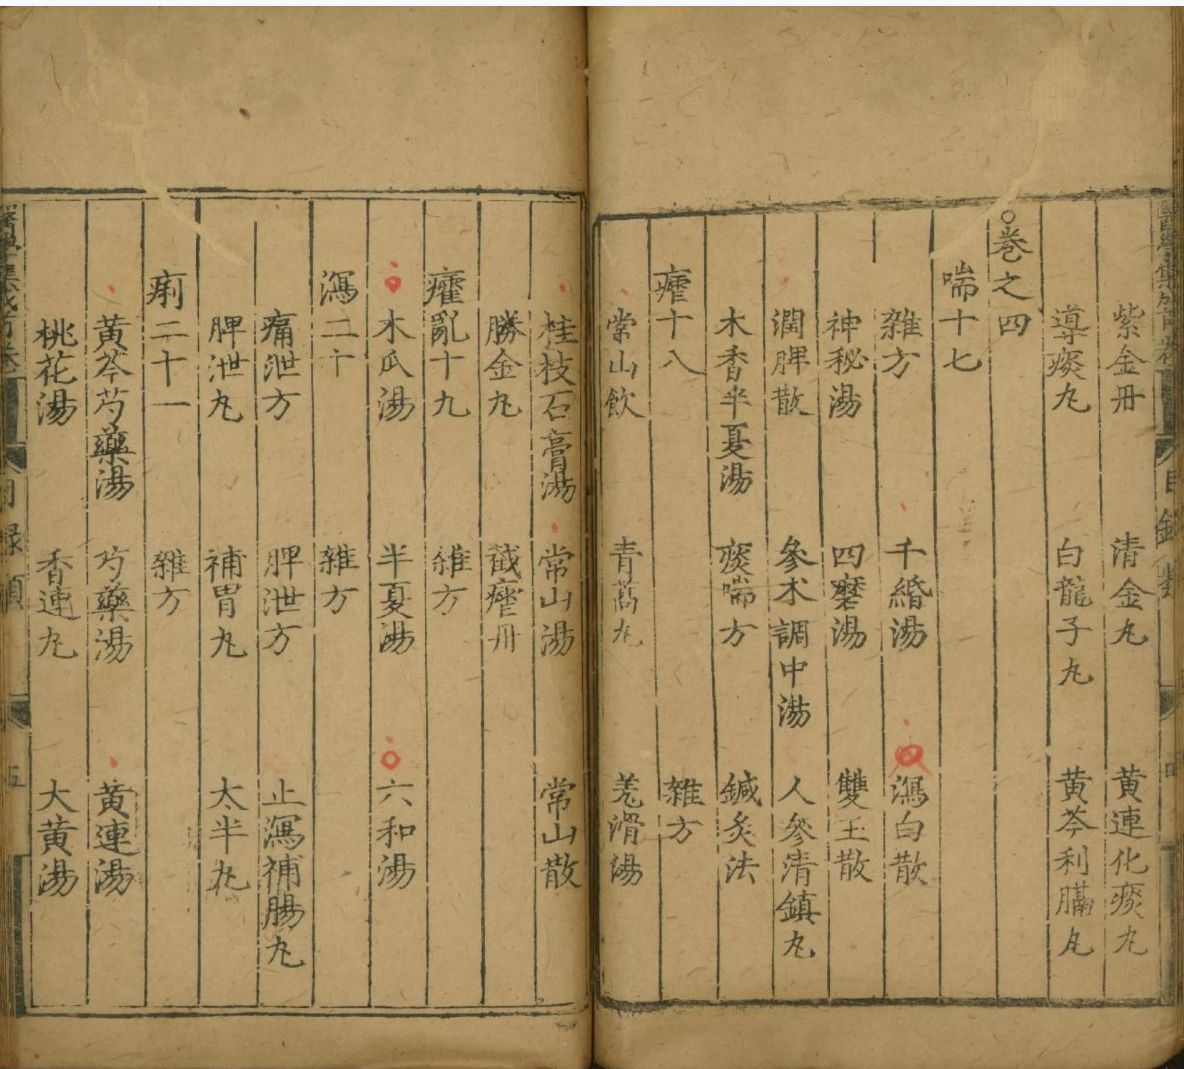 紫金丹 清金丸 黃連化痰丸
導痰丸 白龍子丸 黃芩利膈丸
卷之四
喘十七
雜方 千緡湯 瀉白散
神秘湯 四磨湯 雙玉散
潤脾散 參术調中湯 人參清鎮丸
木香半夏湯 痰喘方 鍼灸法
瘧十八 雜方
常山飲 青蒿丸 羌滑湯
桂枝石膏湯 常山湯 常山散
勝金丸 截瘧丹
癨亂十九 雜方
木瓜湯 半夏湯 六和湯
瀉二十 雜方
痛泄方 脾泄方 止瀉補腸丸
脾泄丸 補胃丸 太半丸
痢二十一 雜方
黃芩芍藥湯 芍藥湯 黃連湯
桃花湯 香連丸 大黃湯
目錄類 五